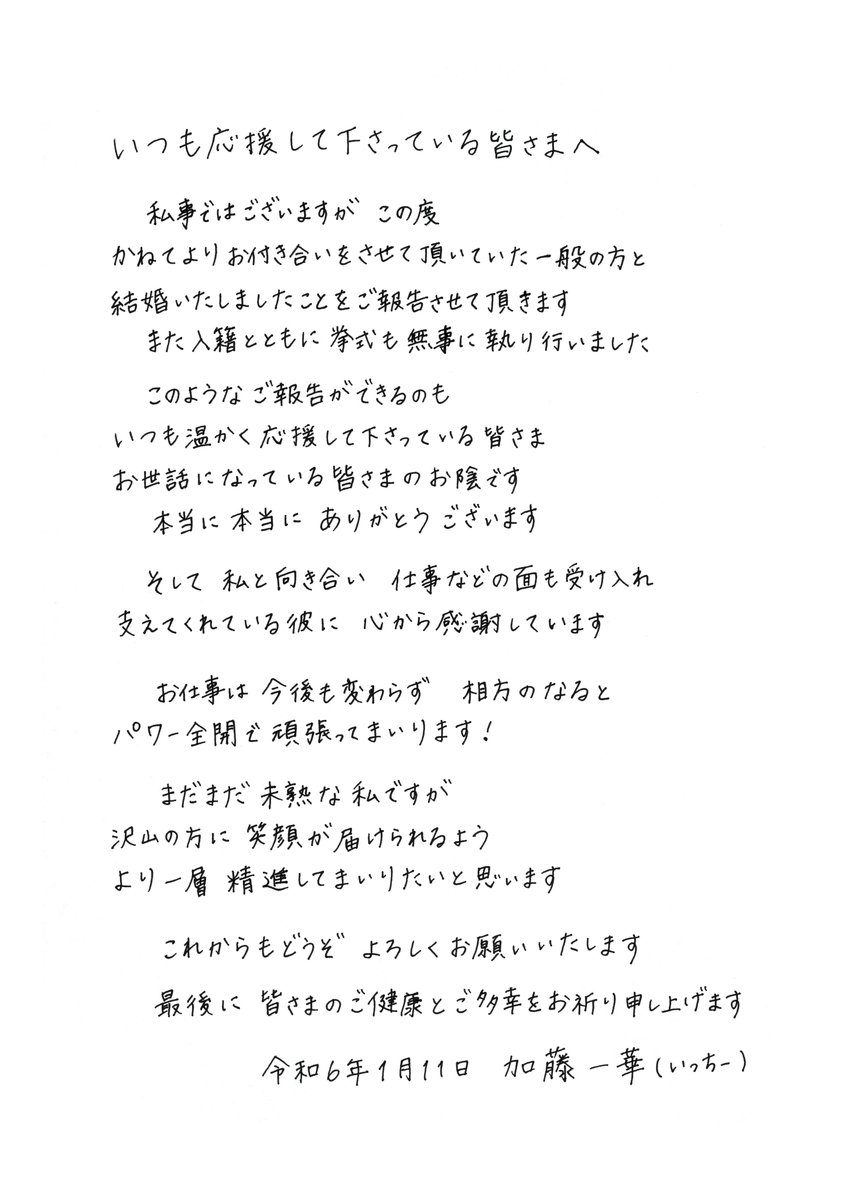 いつも応援して下さっている皆さまへ
私事ではございますが この度
かねてよりお付き合いをさせて頂いていた一般の方と
結婚いたしましたことをご報告させて頂きます
また入籍とともに挙式も無事に執り行いました
このようなご報告ができるのも
いつも温かく応援して下さっている皆さま
お世話になっている皆さまのお陰です
本当に本当に ありがとうございます
そして 私と向き合い 仕事などの面も受け入れ
支えてくれている彼に 心から感謝しています
お仕事は 今後も変わらず 相方のなると
パワー全開で頑張ってまいります!
まだまだ未熟な私ですが
沢山の方に 笑顔が届けられるよう
より一層 精進してまいりたいと思います
これからもどうぞ よろしくお願いいたします
最後に 皆さまのご健康とご多幸をお祈り申し上げます
令和6年1月11日 加藤一華(いっちー)